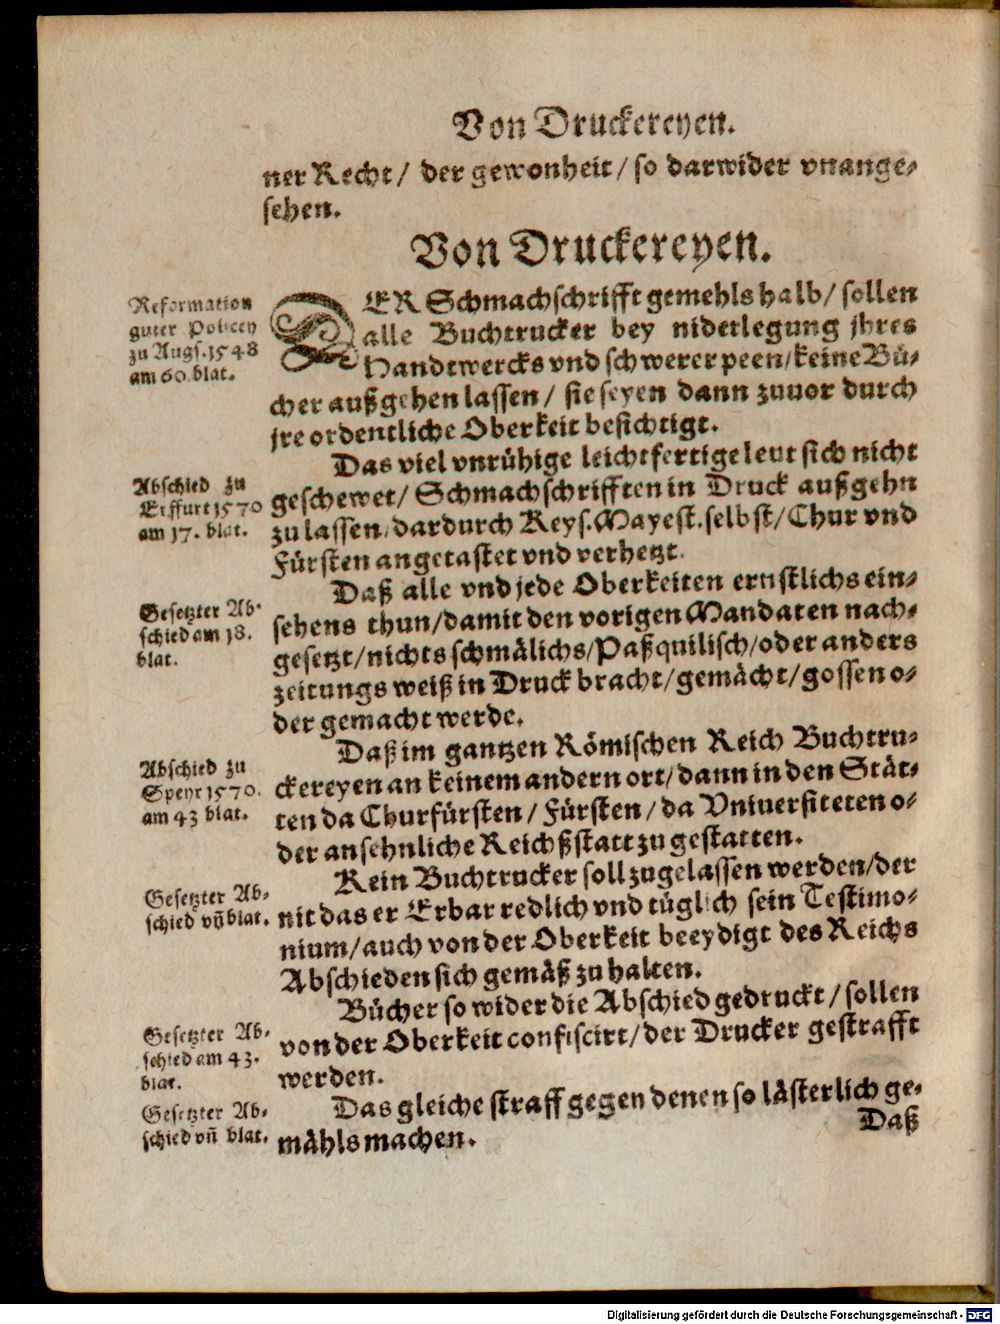 Von Druckereyen.
ner Recht/ der gewonheit/ so darwider vnange-
sehen.
Von Druckereyen.
Reformation
guter Policey
zu Augs. 1548
am 60. blat.
DER Schmachschrifft gemehls halb/ sollen
alle Buchtrucker bey niderlegung jhres
Handtwercks vnd schwerer peen/ keine Bü-
cher außgehen lassen/ sie seyen dann zuuor durch
jre ordentliche Oberkeit besichtigt.
Abschied zu
Erffurt 1570
am 17. blat.
Das viel vnrühige leichtfertige leut sich nicht
geschewet/ Schmachschrifften in Druck außgehn
zu lassen/ dardurch Keys. Mayest. selbst/ Chur vnd
Fürsten angetastet vnd verhetzt.
Gesetzter Ab-
schied am 18.
blat.
Daß alle vnd jede Oberkeiten ernstlichs ein-
sehens thun/ damit den vorigen Mandaten nach-
gesetzt/ nichts schmälichs/ Paßquilisch/ oder anders
zeitungs weiß in Druck bracht/ gemächt/ gossen o-
der gemacht werde.
Abschied zu
Speyr 1570.
am 43 blat.
Daß im gantzen Römischen Reich Buchtru-
ckereyen an keinem andern ort/ dann in den Stät-
ten da Churfürsten/ Fürsten/ da Vniuersiteten o-
der ansehnliche Reichßstatt zu gestatten.
Gesetzter Ab-
schied vñ blat.
Kein Buchtrucker soll zugelassen werden/ der
nit das er Erbar redlich vnd tüglich sein Testimo-
nium/ auch von der Oberkeit beeydigt des Reichs
Abschieden sich gemäß zu halten.
Gesetzter Ab-
schied am 43.
blat.
Bücher so wider die Abschied gedruckt/ sollen
von der Oberkeit confiscirt/ der Drucker gestrafft
werden.
Gesetzter Ab-
schied vñ blat.
Das gleiche straff gegen denen so lästerlich ge-
mähls machen.
Daß
Digitalisierung gefördert durch die Deutsche Forschungsgemeinschaft - DFG